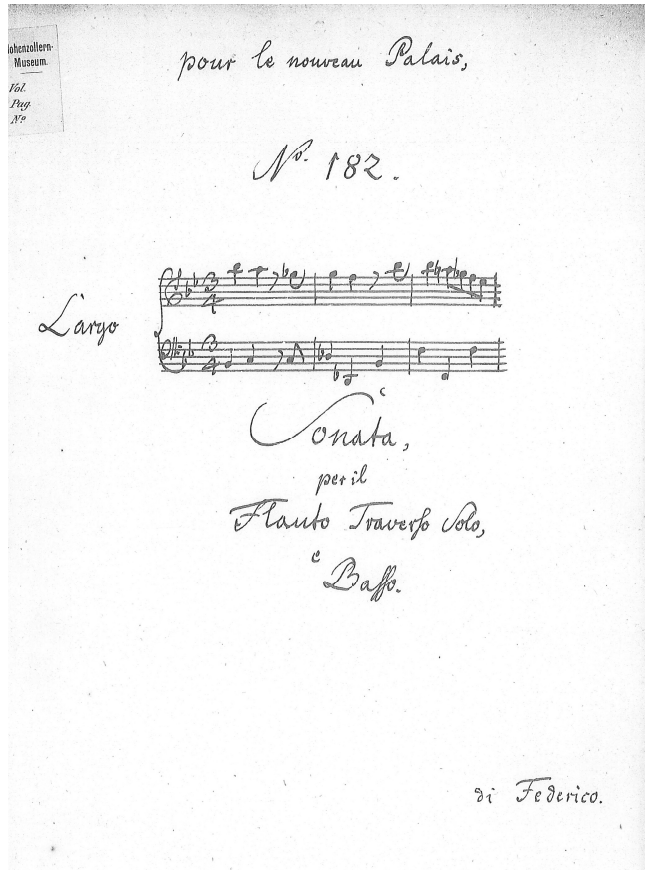 Hohenzollern-
Museum.
Vol.
Pag.
No
pour le nouveau Palais,
No. 182.
Largo
3
4
3
4
Sonata,
per il
Flauto Traverſo Solo,
e
Baſſo.
di Federico.